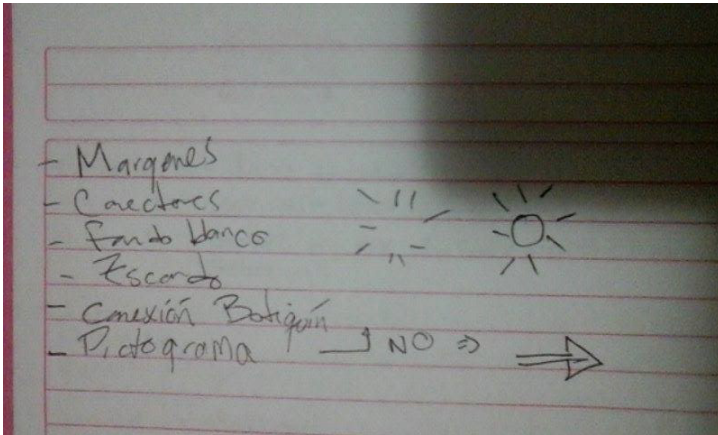 - Margenes
- Conectores
- Fondo blanco
- Escondo
- Conexión Botiquín
- Pictograma NO ⇒